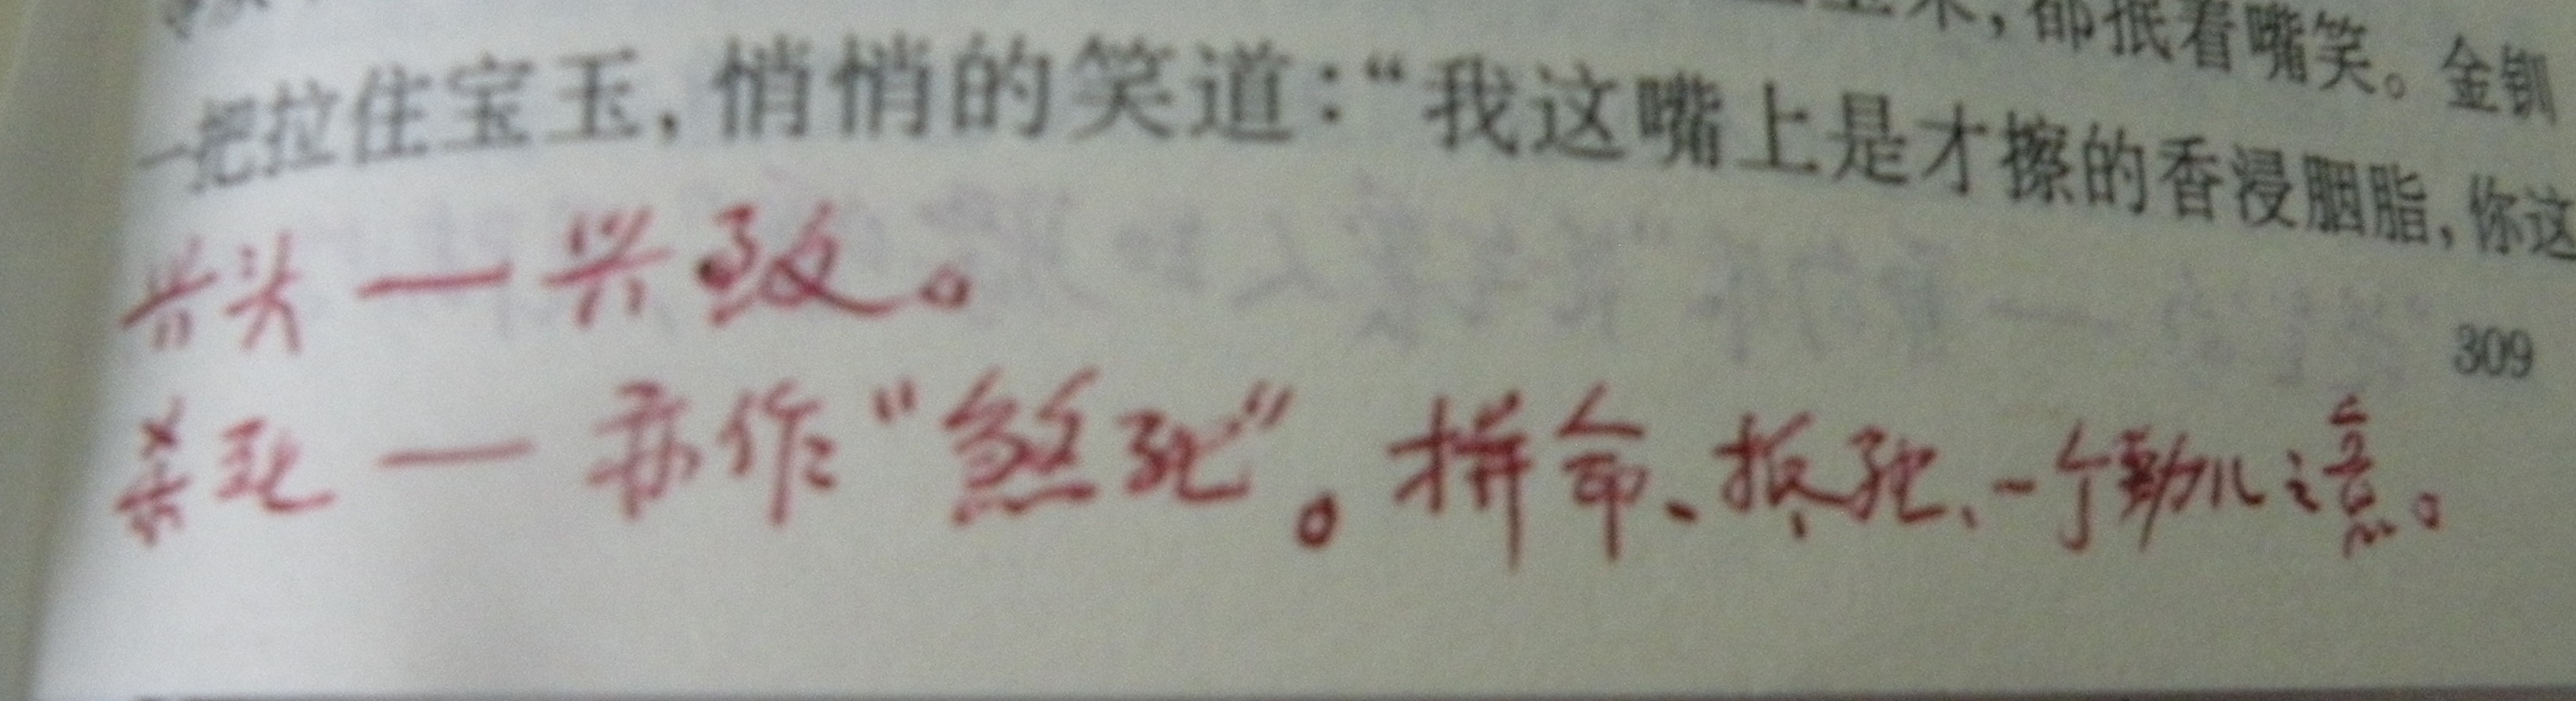 ，都抿着嘴笑。金钏
一把拉住宝玉，悄悄的笑道：“我这嘴上是才擦的香浸胭脂，你这
309
兴头——兴致。
杀死——亦作“煞死”。拼命、抵死、一个劲儿之意。